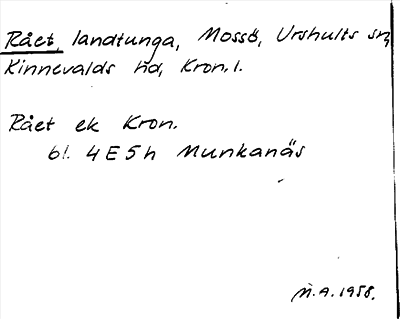 Rået, landtunga, Mossö, Urshults sn,
Kinnevalds hd, Kron.l.
Rået ek Kron.
bl. 4E5h Munkanäs
M.A. 1958.